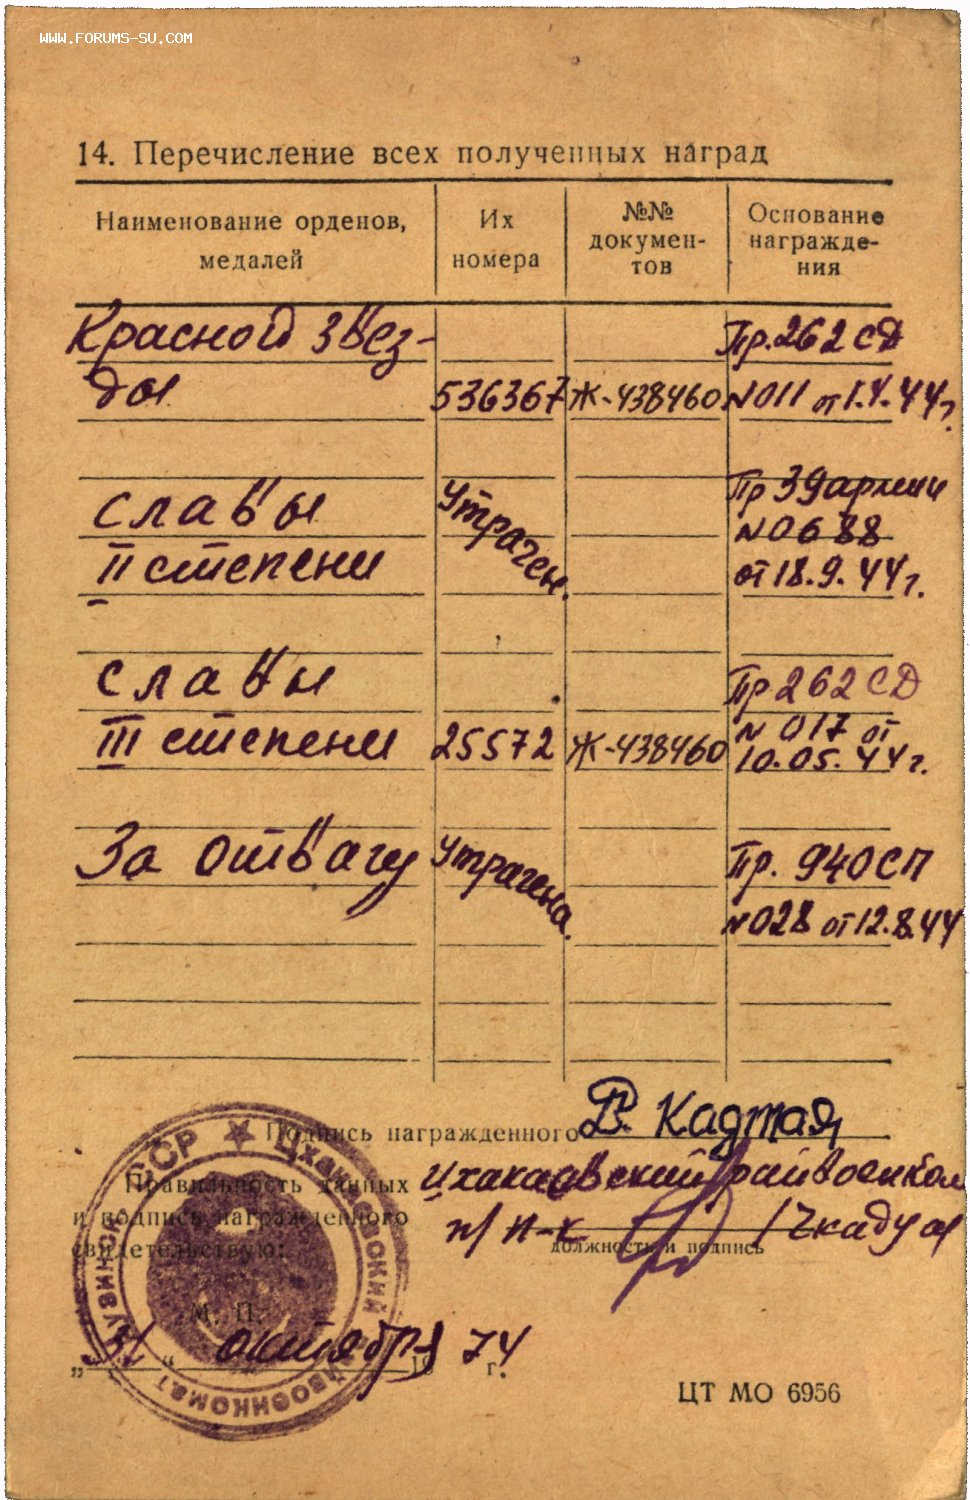 WWW.FORUMS-SU.COM
14. Перечисление всех полученных наград
Наименование орденов, медалей
Их номера
№№ документов
Основание награждения
Красной Звез-
ды
536367
Ж-438460
Пр. 262 СД
№ 011 от 1.4.44 г.
Славы
II степени
Утрачен.
Пр 39 армии
№ 0688
от 18.9.44 г.
Славы
III степени
25572
Ж-438460
Пр 262 СД
№ 017 от
10.05.44 г.
За отвагу
Утрачена.
Пр. 940 СП
№ 028 от 12.8.44
Подпись награжденного
В. Кадтая
Правильность данных
и подпись награжденного
свидетельствую:
Цхакаевский райвоенком
п/п-к /Чкадуа/
должность и подпись
М. П.
„31“ октября 1974 г.
ЦТ МО 6956